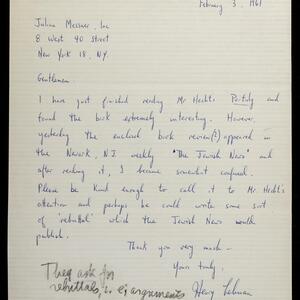 February 3, 1961
Julian Messner, Inc
8 West 40 Street
New York 18, N.Y.
Gentlemen
I have just finished reading Mr Hecht's Perfidy and
found the book extremely interesting. However,
yesterday the enclosed book review(?) appeared in
the Newark, N.J. weekly "The Jewish News" and
after reading it, I became somewhat confused.
Please be kind enough to call it to Mr. Hecht's
attention and perhaps he could write some sort
of 'rebuttal' which the Jewish News would
publish.
Thank you very much –
Yours truly,
They ask for
rebuttals, arguments
Henry